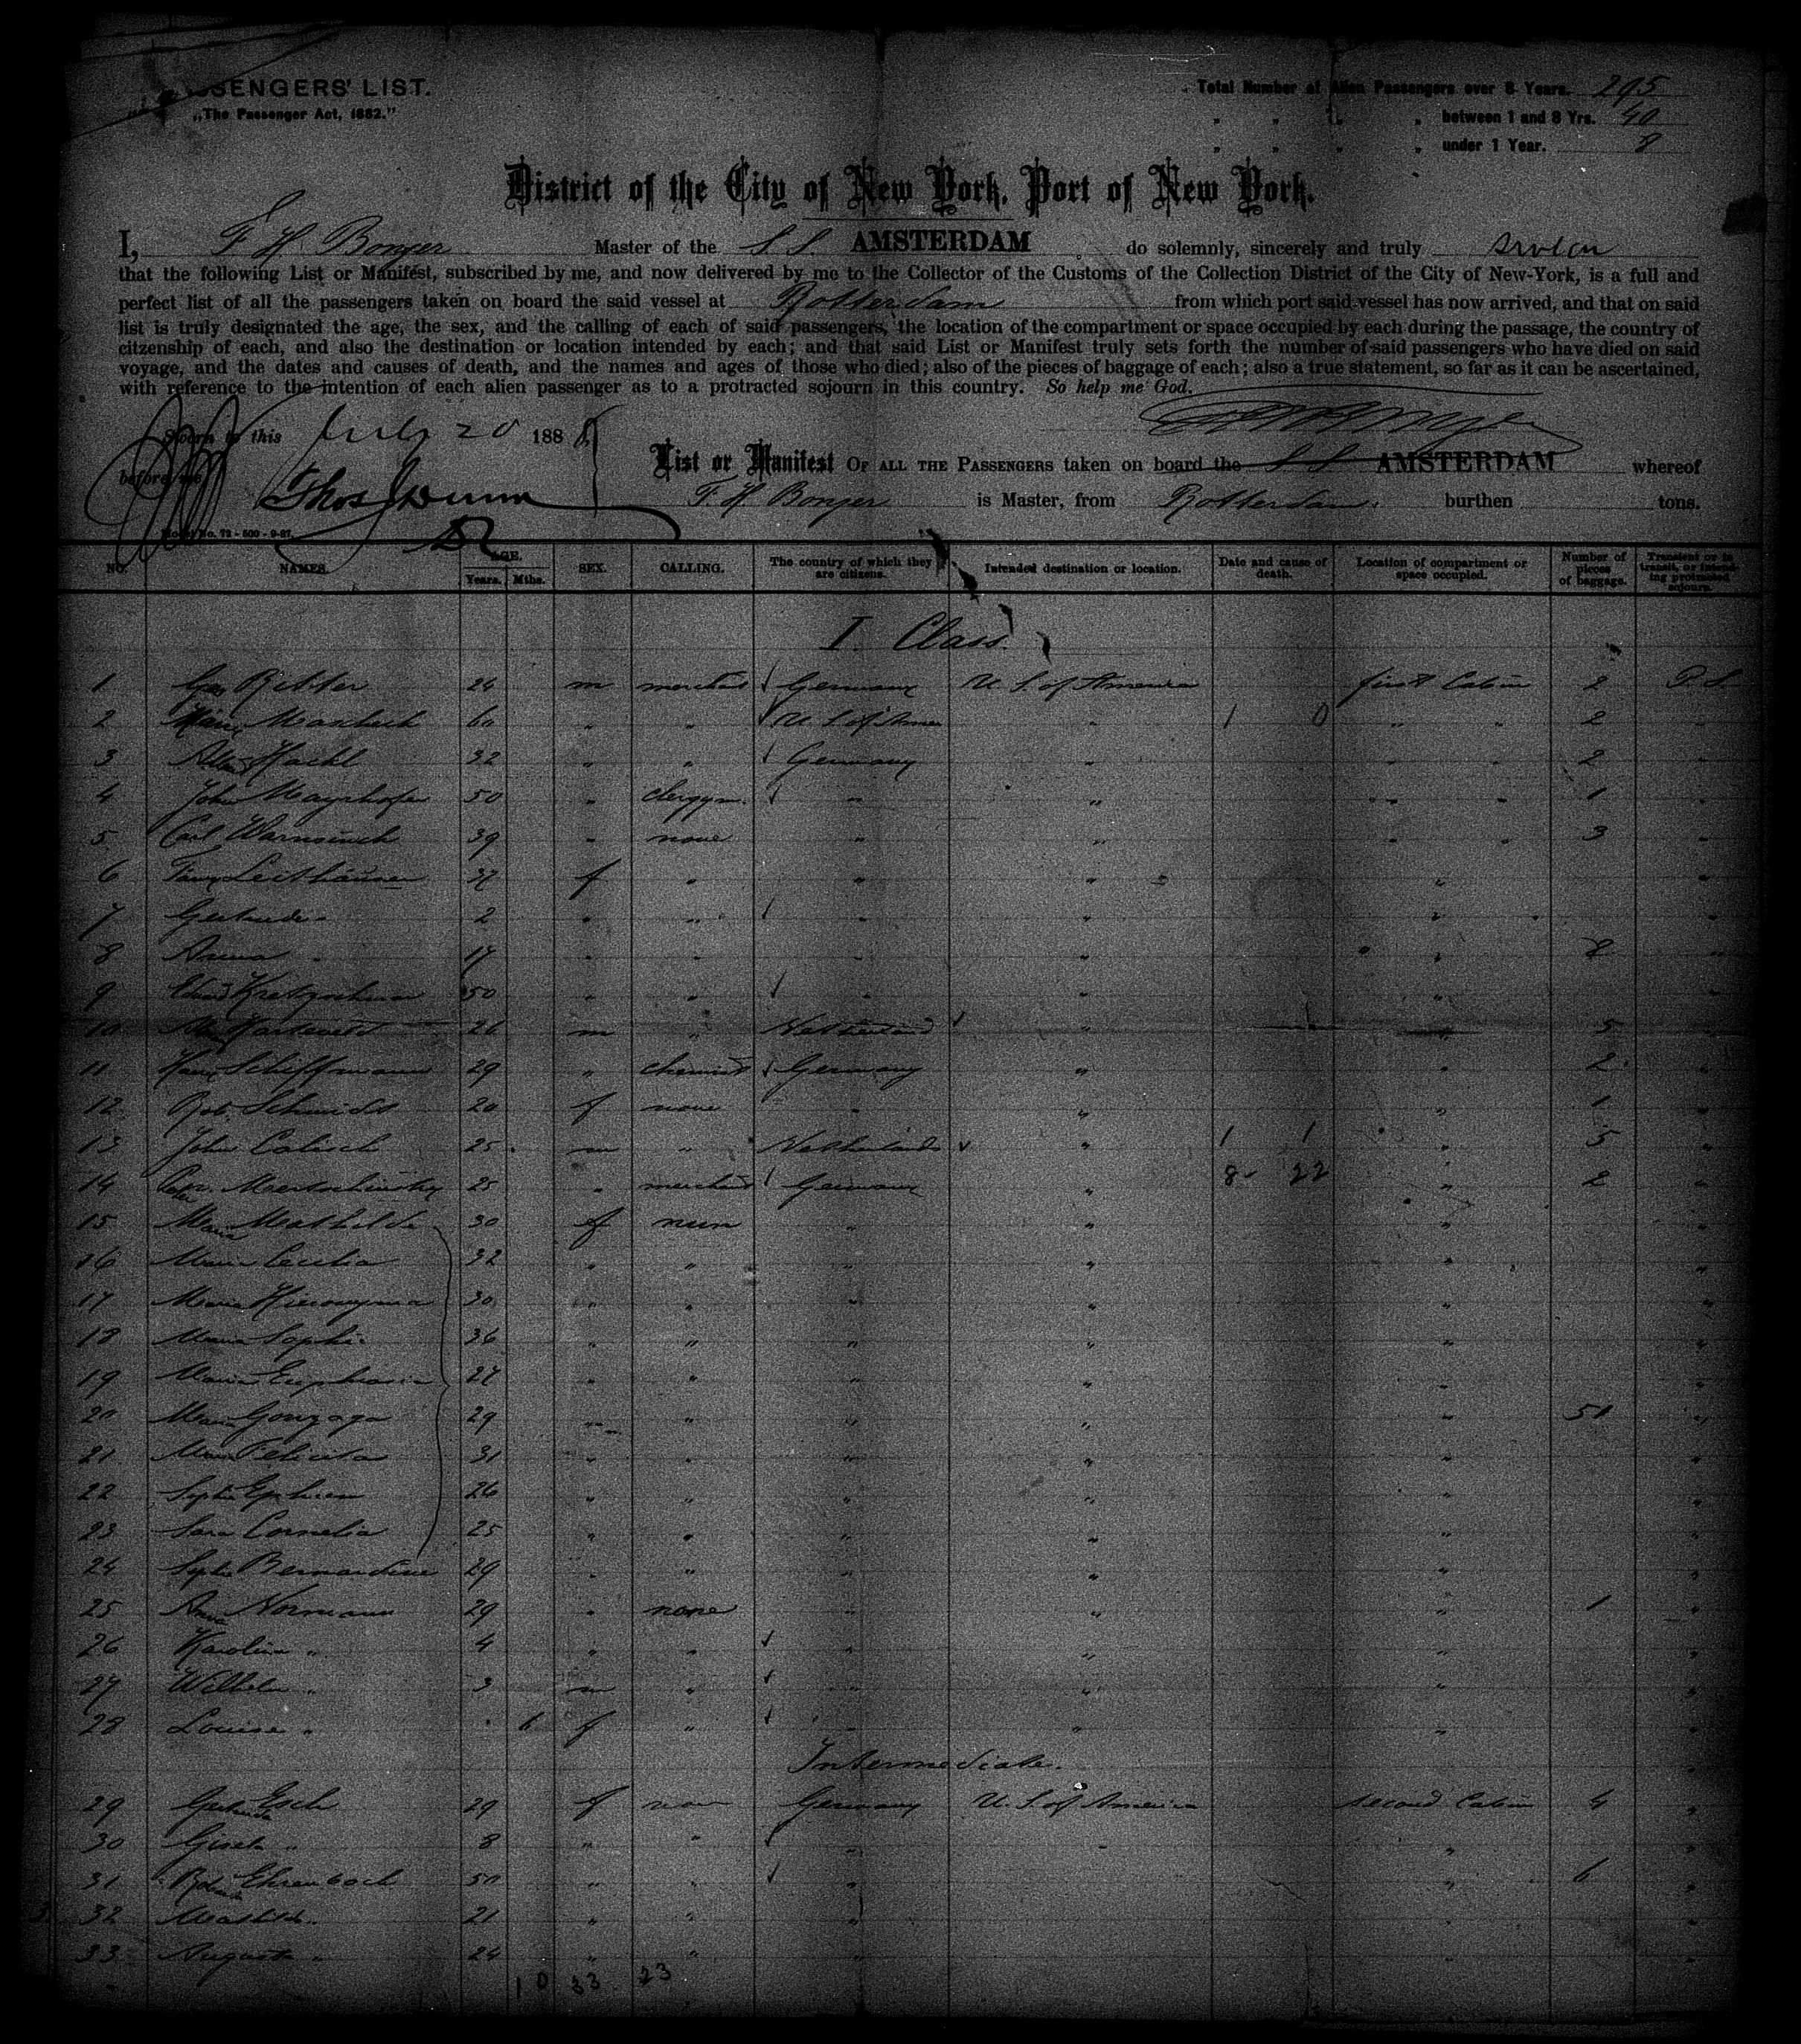 SENGERS' LIST.
„The Passenger Act, 1882."
Total Number of Alien Passengers over 8 Years. 295
„ „ „ „ between 1 and 8 Yrs. 40
„ „ „ „ under 1 Year. 8
District of the City of New York, Port of New York.
I, F. H. Bonjer Master of the S.S. AMSTERDAM do solemnly, sincerely and truly
that the following List or Manifest, subscribed by me, and now delivered by me to the Collector of the Customs of the Collection District of the City of New-York, is a full and
perfect list of all the passengers taken on board the said vessel at Rotterdam from which port said vessel has now arrived, and that on said
list is truly designated the age, the sex, and the calling of each of said passengers, the location of the compartment or space occupied by each during the passage, the country of
citzenship of each, and also the destination or location intended by each; and that said List or Manifest truly sets forth the number of said passengers who have died on said
voyage, and the dates and causes of death, and the names and ages of those who died; also of the pieces of baggage of each; also a true statement, so far as it can be ascertained,
with reference to the intention of each alien passenger as to a protracted sojourn in this country. So help me God.
Sworn to this July 20 1888
before me
Thos Dunn
List or Manifest OF ALL THE PASSENGERS taken on board the S.S. AMSTERDAM whereof
F. H. Bonjer is Master, from Rotterdam. burthen tons.
Model No. 72 - 500 - 9-87.
NO. NAMES. AGE. Years. Mths. SEX. CALLING. The country of which they are citizens. Intended destination or location. Date and cause of death. Location of compartment or space occupied. Number of pieces of baggage. Transient or in transit, or intending protracted sojourn.
I. Class.
1 Ritter 24 m merchant Germany U. S. of America first Cabin 2 P. S.
2 60 „ „ U. S. of Amer „ 1 0 „ „ 2 „
3 Hackl 32 „ „ Germany „ „ „ 2 „
4 John Mayrhofer 50 „ clergym. „ „ „ „ 1 „
5 Carl 39 „ none „ „ „ „ 3 „
6 Leithäuser 37 f „ „ „ „ „
7 Gertrude „ 2 „ „ „ „ „ „
8 Anna „ 17 „ „ „ „ „ 8 „
9 Kretzschmar 50 „ „ „ „ „ „
10 26 m „ Netherland „ „ 5 „
11 Schiffmann 29 „ chemist Germany „ „ 2 „
12 Rob. Schmidt 20 f none „ „ „ 1 „
13 John Calisch 25 m „ Netherlands „ 1 1 „ 5 „
14 25 „ merchant Germany „ 8 22 „ 2 „
15 Maria Mathilde 30 f nun „ „ „ „
16 Maria Cecilia 32 „ „ „ „ „ „
17 Maria Hieronyma 30 „ „ „ „ „ „
18 Maria Sophie 36 „ „ „ „ „ „
19 Maria 27 „ „ „ „ „ „
20 Maria Gonzaga 29 „ „ „ „ „ 51 „
21 Maria Felicita 31 „ „ „ „ „ „
22 Sophie Ephrem 26 „ „ „ „ „ „
23 Sara Cornelia 25 „ „ „ „ „ „
24 Sophie Bernardine 29 „ „ „ „ „ „
25 Anna Normann 29 „ none „ „ „ 1 „
26 Karolin „ 4 „ „ „ „ „ „
27 Wilhelm „ 3 m „ „ „ „ „
28 Louise „ 6 f „ „ „ „ „
Intermediate.
29 Gertrude Esch 29 f none Germany U. S. of America second Cabin 4 „
30 „ 8 „ „ „ „ „ „
31 Ehrenbach 50 „ „ „ „ 6 „
32 Mathilde „ 21 „ „ „ „ „
33 Augusta „ 24 „ „ „ „
10 33 23